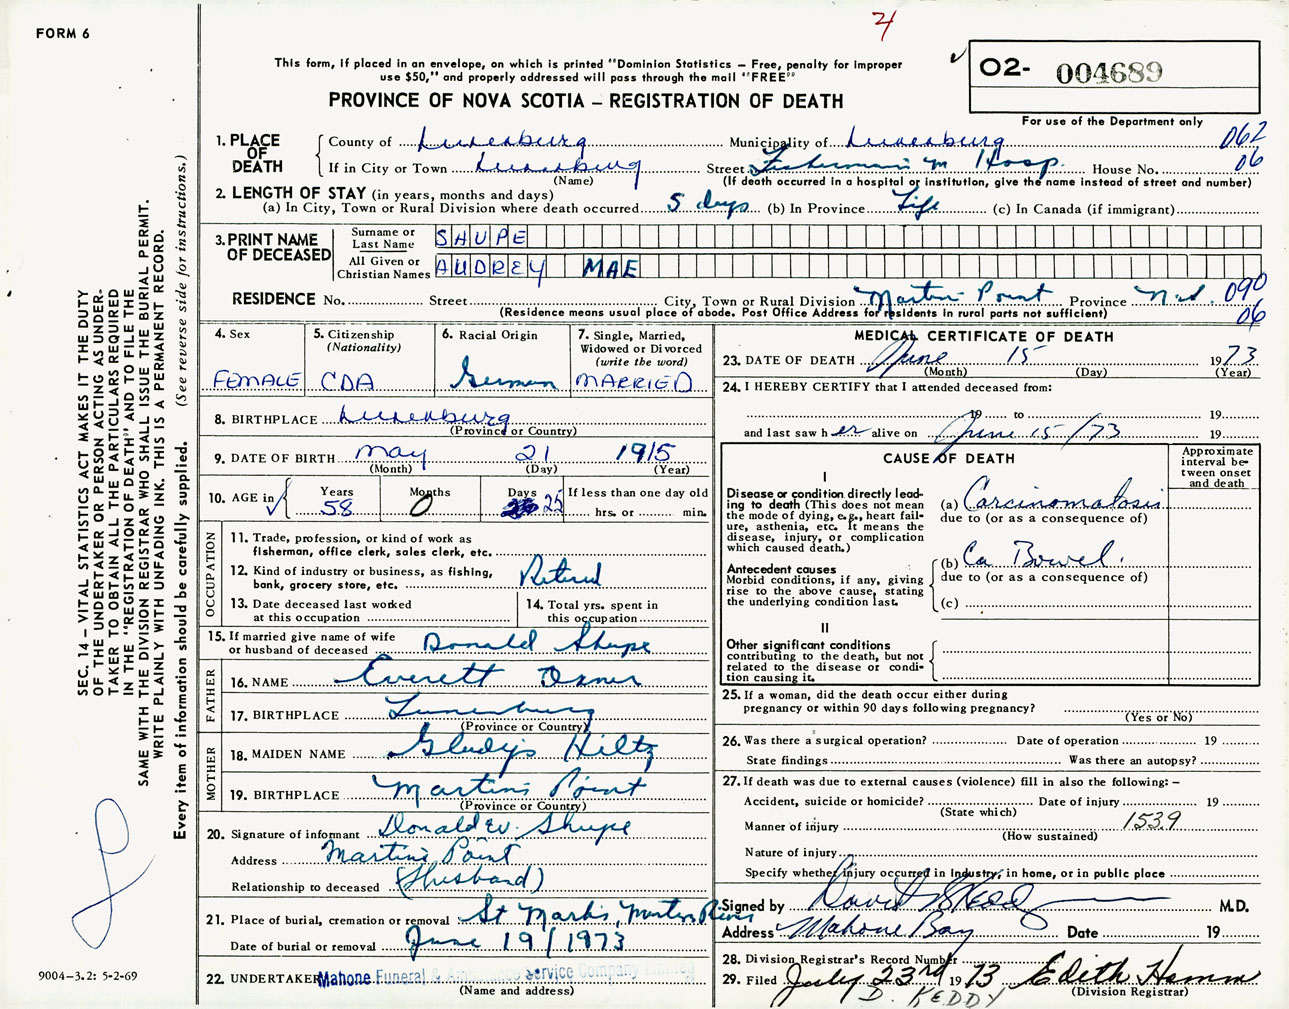 FORM 6
4
This form, if placed in an envelope, on which is printed "Dominion Statistics — Free, penalty for improper
use $50," and properly addressed will pass through the mail "FREE"
PROVINCE OF NOVA SCOTIA – REGISTRATION OF DEATH
O2- 004689
For use of the Department only
1. PLACE OF DEATH
County of Lunenburg Municipality of Lunenburg 062
If in City or Town Lunenburg Street Fisherman's M Hosp. House No. 06
(Name) (If death occurred in a hospital or institution, give the name instead of street and number)
2. LENGTH OF STAY (in years, months and days)
(a) In City, Town or Rural Division where death occurred 5 days (b) In Province Life (c) In Canada (if immigrant)
3. PRINT NAME OF DECEASED
Surname or Last Name SHUPE
All Given or Christian Names AUDREY MAE
RESIDENCE No. Street City, Town or Rural Division Martins Point Province N.S. 090
(Residence means usual place of abode. Post Office Address for residents in rural parts not sufficient) 06
4. Sex
FEMALE
5. Citizenship
(Nationality)
CDA
6. Racial Origin
German
7. Single, Married,
Widowed or Divorced
(write the word)
MARRIED
8. BIRTHPLACE Lunenburg
(Province or Country)
9. DATE OF BIRTH May 21 1915
(Month) (Day) (Year)
10. AGE in
Years Months Days If less than one day old
58 0 25 hrs. or min.
OCCUPATION
11. Trade, profession, or kind of work as
fisherman, office clerk, sales clerk, etc.
12. Kind of industry or business, as fishing,
bank, grocery store, etc. Retired
13. Date deceased last worked
at this occupation
14. Total yrs. spent in
this occupation
15. If married give name of wife
or husband of deceased Donald Shupe
FATHER
16. NAME Everett Oxner
17. BIRTHPLACE Lunenburg
(Province or Country)
MOTHER
18. MAIDEN NAME Gladys Hiltz
19. BIRTHPLACE Martins Point
(Province or Country)
20. Signature of informant Donald W. Shupe
Address Martins Point
Relationship to deceased (Husband)
21. Place of burial, cremation or removal St Marks, Martins River
Date of burial or removal June 19/1973
22. UNDERTAKER Mahone Funeral & Ambulance Service Company Limited
(Name and address)
MEDICAL CERTIFICATE OF DEATH
23. DATE OF DEATH June 15 1973
(Month) (Day) (Year)
24. I HEREBY CERTIFY that I attended deceased from:
19 to 19
and last saw her alive on June 15/73 19
CAUSE OF DEATH
Approximate
interval be-
tween onset
and death
I
Disease or condition directly lead-
ing to death (This does not mean
the mode of dying, e.g., heart fail-
ure, asthenia, etc. It means the
disease, injury, or complication
which caused death.)
(a) Carcinomatosis
due to (or as a consequence of)
Antecedent causes
Morbid conditions, if any, giving
rise to the above cause, stating
the underlying condition last.
(b) Ca Bowel.
due to (or as a consequence of)
(c)
II
Other significant conditions
contributing to the death, but not
related to the disease or condi-
tion causing it.
25. If a woman, did the death occur either during
pregnancy or within 90 days following pregnancy?
(Yes or No)
26. Was there a surgical operation? Date of operation 19
State findings Was there an autopsy?
27. If death was due to external causes (violence) fill in also the following: –
Accident, suicide or homicide? Date of injury 19
(State which)
Manner of injury 1539
(How sustained)
Nature of injury
Specify whether injury occurred in industry, in home, or in public place
Signed by M.D.
Address Mahone Bay Date 19
28. Division Registrar's Record Number
29. Filed July 23rd 1973 Edith Hamm
(Division Registrar)
D. KEDDY
SEC. 14 – VITAL STATISTICS ACT MAKES IT THE DUTY
OF THE UNDERTAKER OR PERSON ACTING AS UNDER-
TAKER TO OBTAIN ALL THE PARTICULARS REQUIRED
IN THE "REGISTRATION OF DEATH" AND TO FILE THE
SAME WITH THE DIVISION REGISTRAR WHO SHALL ISSUE THE BURIAL PERMIT.
WRITE PLAINLY WITH UNFADING INK. THIS IS A PERMANENT RECORD.
Every item of information should be carefully supplied. (See reverse side for instructions.)
9004–3.2: 5-2-69